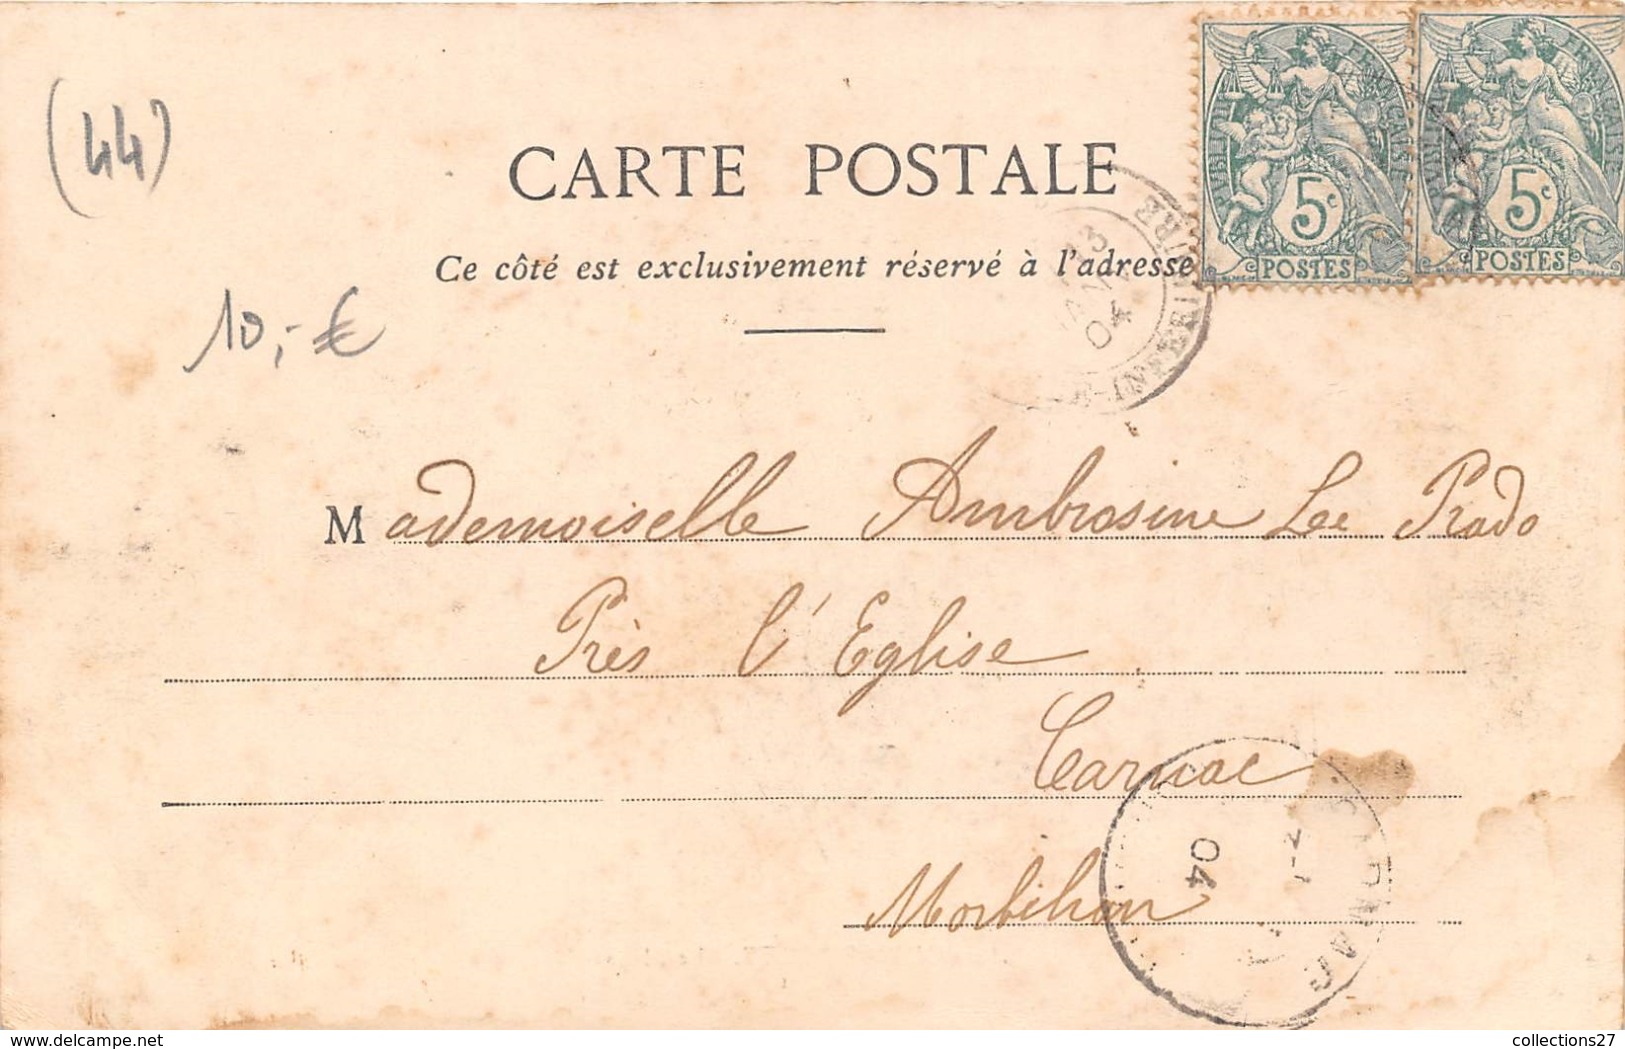 (44)
CARTE POSTALE
Ce côté est exclusivement réservé à l'adresse
10,-€
RÉPUBLIQUE FRANÇAISE
5c
POSTES
RÉPUBLIQUE FRANÇAISE
5c
POSTES
13
04
LOIRE-INFRE
Mademoiselle Ambrosine Le Prado
Près l'Eglise
Carnac
Morbihan
CARNAC
04
delcampe.net
collections27